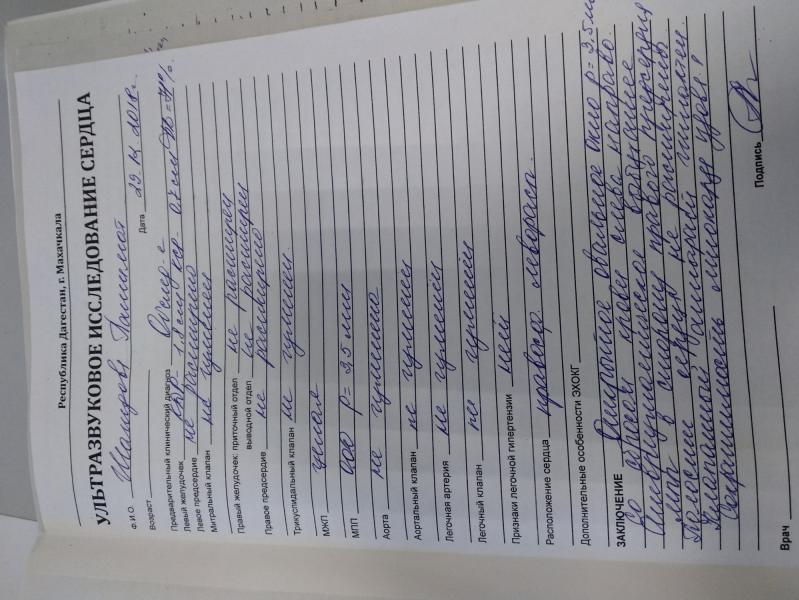 Республика Дагестан, г. Махачкала
УЛЬТРАЗВУКОВОЕ ИССЛЕДОВАНИЕ СЕРДЦА
Ф.И.О. Патимат
Возраст Дата 29
Предварительный клинический диагноз
Левый желудочек
Левое предсердие не расширено
Митральный клапан не изменен
Правый желудочек: приточный отдел не расширен
выводной отдел не расширен
Правое предсердие не расширено
Трикуспидальный клапан не изменен
МЖП целая
МПП ООО р= 3,5 мм
Аорта не изменена
Аортальный клапан не изменен
Легочная артерия не изменен
Легочный клапан не изменен
Признаки легочной гипертензии нет
Расположение сердца
Дополнительные особенности ЭХОКГ
ЗАКЛЮЧЕНИЕ Открытое овальное окно р= 3,5 мм
со сбросом крови слева направо.
правого предсердия
Полости сердца не расширены
Клапанный аппарат интактен
Сократимость миокарда удовл.
Врач Подпись